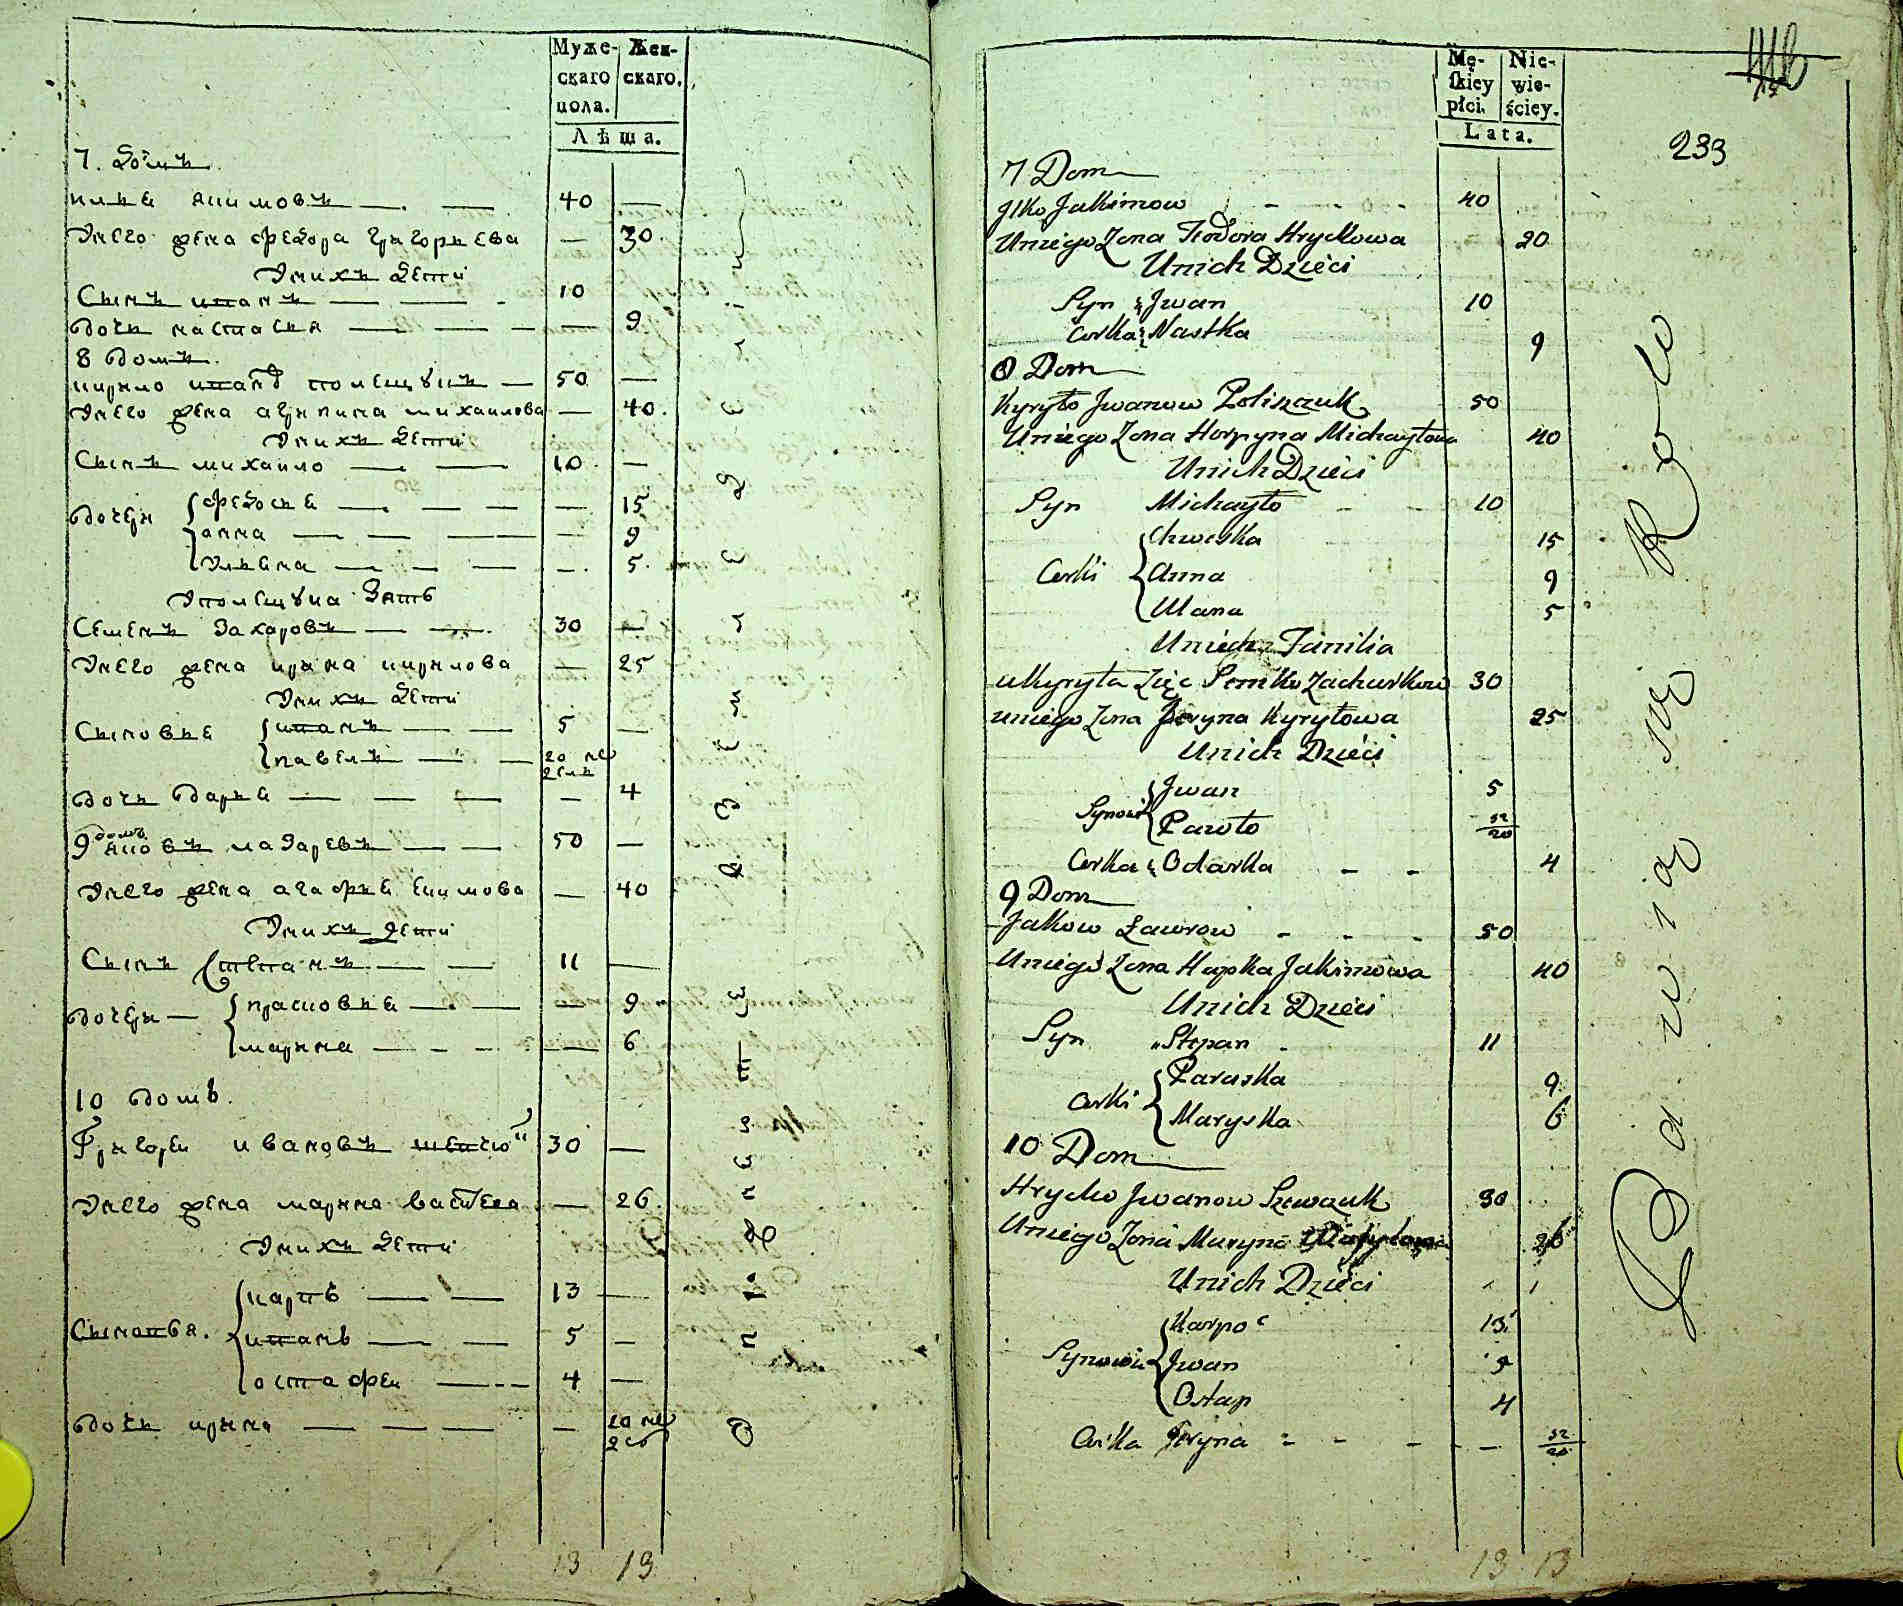 Муже-
скаго
пола.
Жен-
скаго.
Лѣта.
7. домъ
илья якимовъ 40
Унего жена федора григорьева 30.
Унихъ дети
Сынъ иванъ 10
дочь настасия 9
8 домъ.
кирило иванъ полещукъ 50
Унего жена агрипина михаилова 40.
Унихъ дети
Сынъ михаило 10
дочери федосия 15
анна 9
улияна 5.
Уполещука Зять
Семенъ Захаровъ 30
Унего жена ирина кирилова 25
Унихъ дети
Сыновья иванъ 5
павелъ 20 не
дель
дочь дарья 4
9 домъ
яковъ лазаревъ 50
Унего жена агафия екимова 40
Унихъ дети
Сынъ степанъ 11
дочери прасковия 9
марина 6
10 домъ.
Григореи ивановъ 30
Унего жена марина 26.
Унихъ дети
Сыновья. карпъ 13
иванъ 5
остафеи 4
дочь ирина 20 не
дел
13 13
Mę-
skiey
płci.
Nie-
wie-
ściey.
Lata.
233
7 Dom
Jlko Jakimow 40
Uniego Zona Fiodora Hryckowa 20
Unich Dzieci
Syn Jwan 10
Corka Nastka 9
8 Dom
Kyryło Jwanow Poliszczuk 50
Uniego Zona Horpyna Michayłowa 40
Unich Dzieci
Syn Michayło 10
Corki Chweska 15
Anna 9
Ulana 5
Unich Familia
uKyryła Zięc Semko Zacharkow 30
uniego Zona Jeryna Kyryłowa 25
Unich Dzieci
Synowie Jwan 5
Pawło 52/20
Corka Odarka 4
9 Dom
Jakow Ławrow 50
Uniego Zona Hapka Jakimowa 40
Unich Dzieci
Syn Stepan 11
Corki Paraska 9
Maryska 6
10 Dom
Hrycko Jwanow Szewczuk 30
Uniego Zona Maryna 26
Unich Dzieci
Synowie Karpo 13
Jwan 5
Ostap 4
Corka Jeryna 52/20
13 13